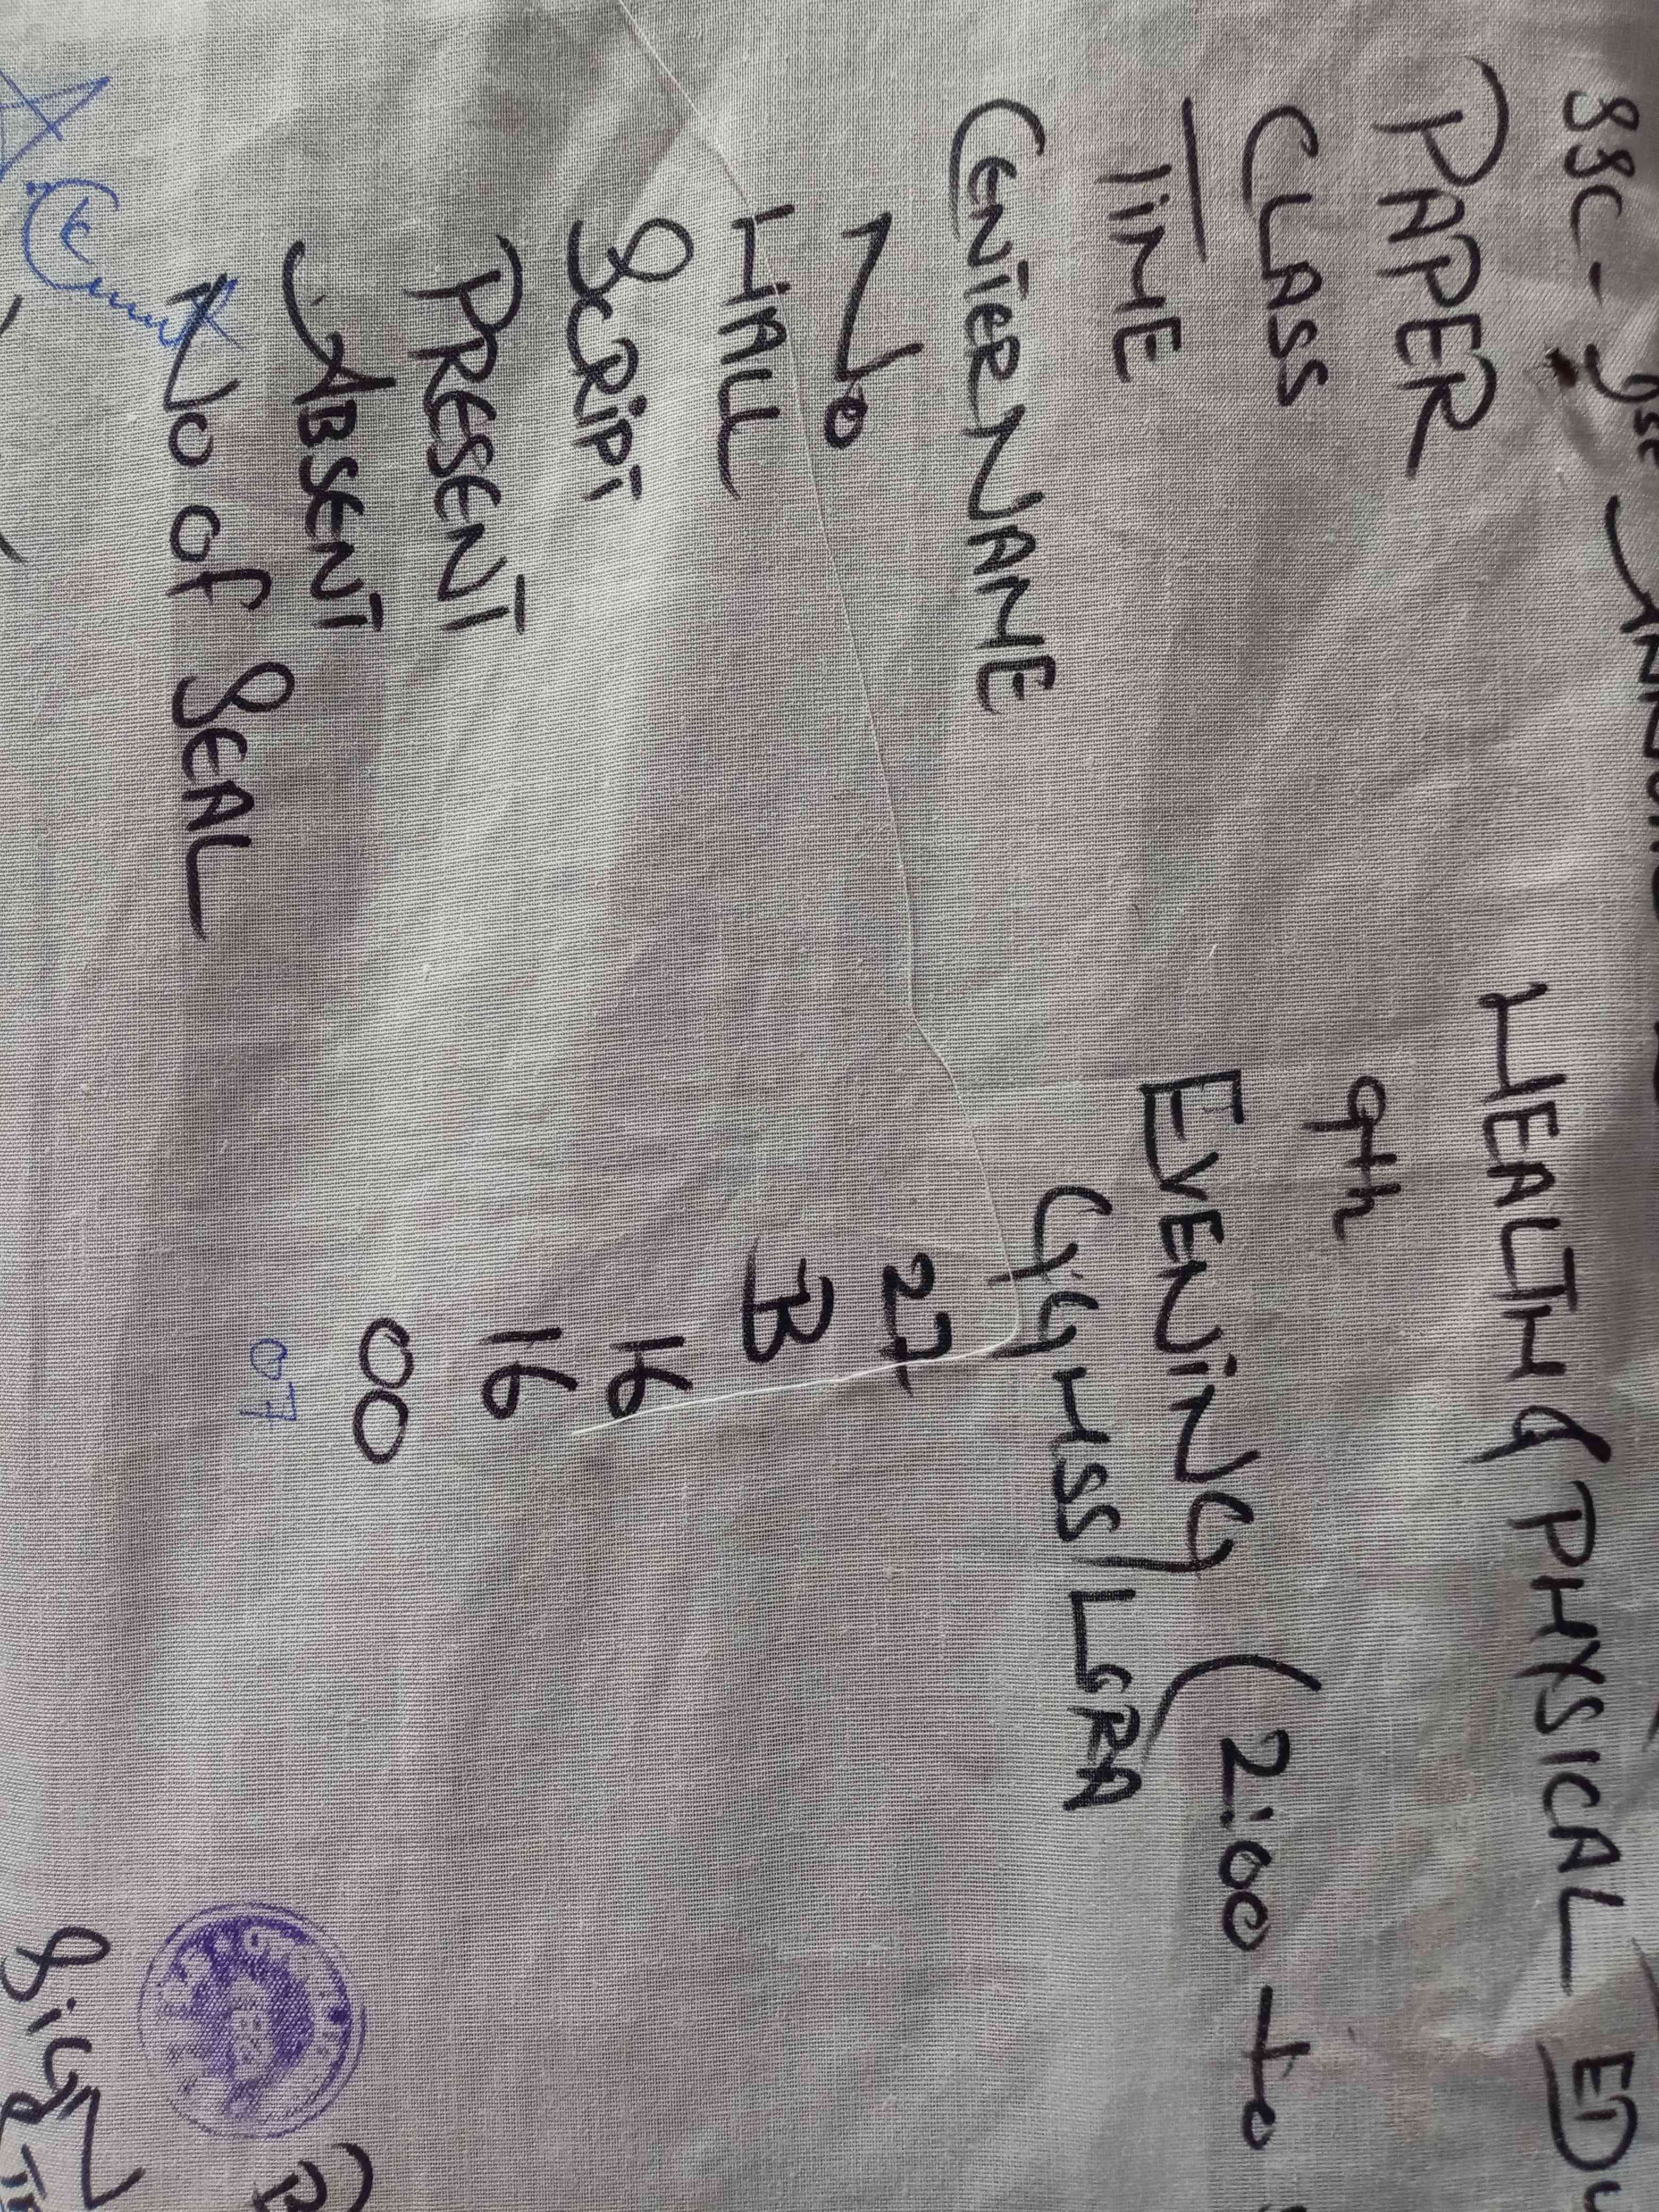 SSC-
PAPER HEALTH & PHYSICAL EDU
CLASS 9th
TIME EVENING (2:00 to
CENTER NAME GGHSS LGRA
No 27
HALL B
SCRIPT 16
PRESENT 16
ABSENT 00
No of SEAL 07